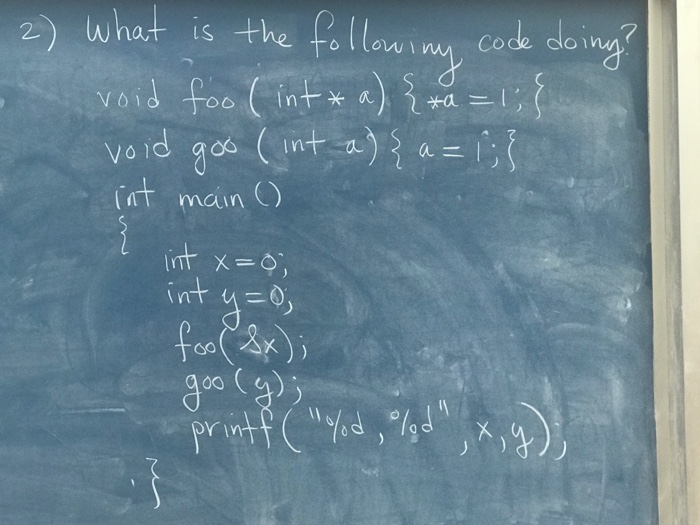 2) What is the following code doing?
void foo (int * a) { *a = 1; {
void goo (int a) { a = 1; }
int main ()
{
int x = 0;
int y = 0;
foo( &x);
goo (y);
printf ("%d, %d", x, y);
}